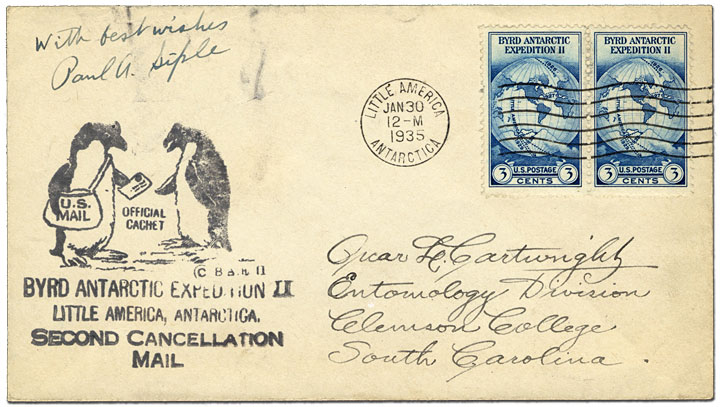 With best wishes
Paul A. Siple
BYRD ANTARCTIC
EXPEDITION II
3 U.S. POSTAGE 3
CENTS
BYRD ANTARCTIC
EXPEDITION II
3 U.S. POSTAGE 3
CENTS
LITTLE AMERICA
JAN 30
12-M
1935
ANTARCTICA
U.S.
MAIL
OFFICIAL
CACHET
BYRD ANTARCTIC EXPEDITION II
LITTLE AMERICA, ANTARCTICA.
SECOND CANCELLATION
MAIL
Oscar L. Cartwright
Entomology Division
Clemson College
South Carolina.